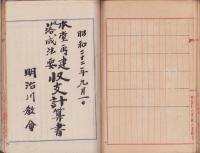 昭和二十二年九月一日
本堂再建
落成法要
收支計算書
明治川教會